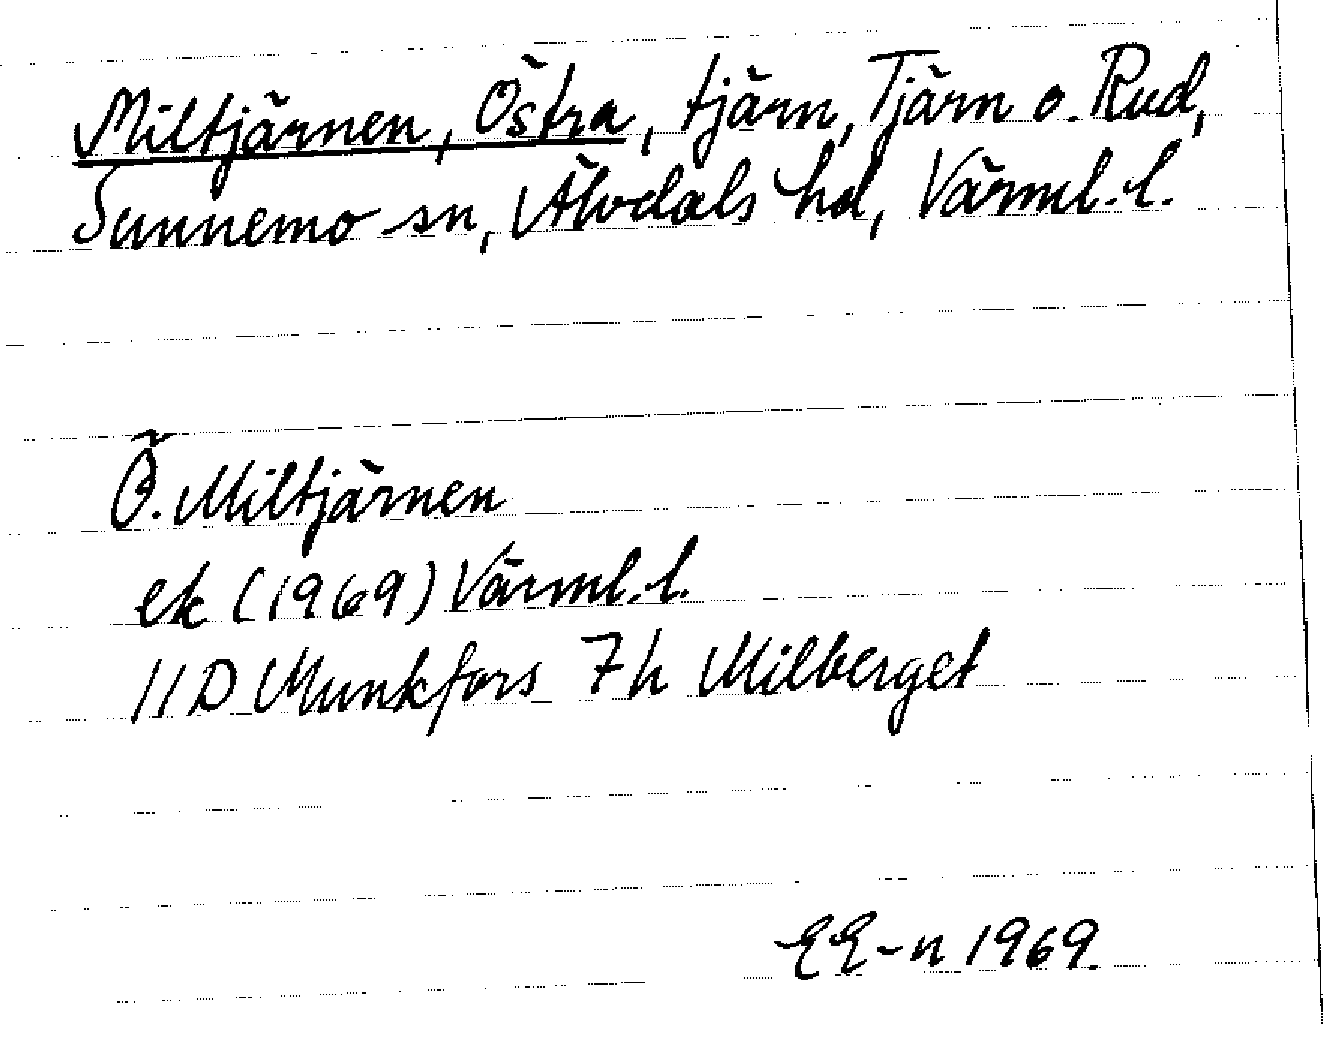 Miltjärnen, Östra, tjärn, Tjärn o. Rud,
Sunnemo sn, Älvdals hd, Värml. l.
Ö. Miltjärnen
ek (1969) Värml. l.
11D Munkfors 7h Milberget
EE-n 1969.